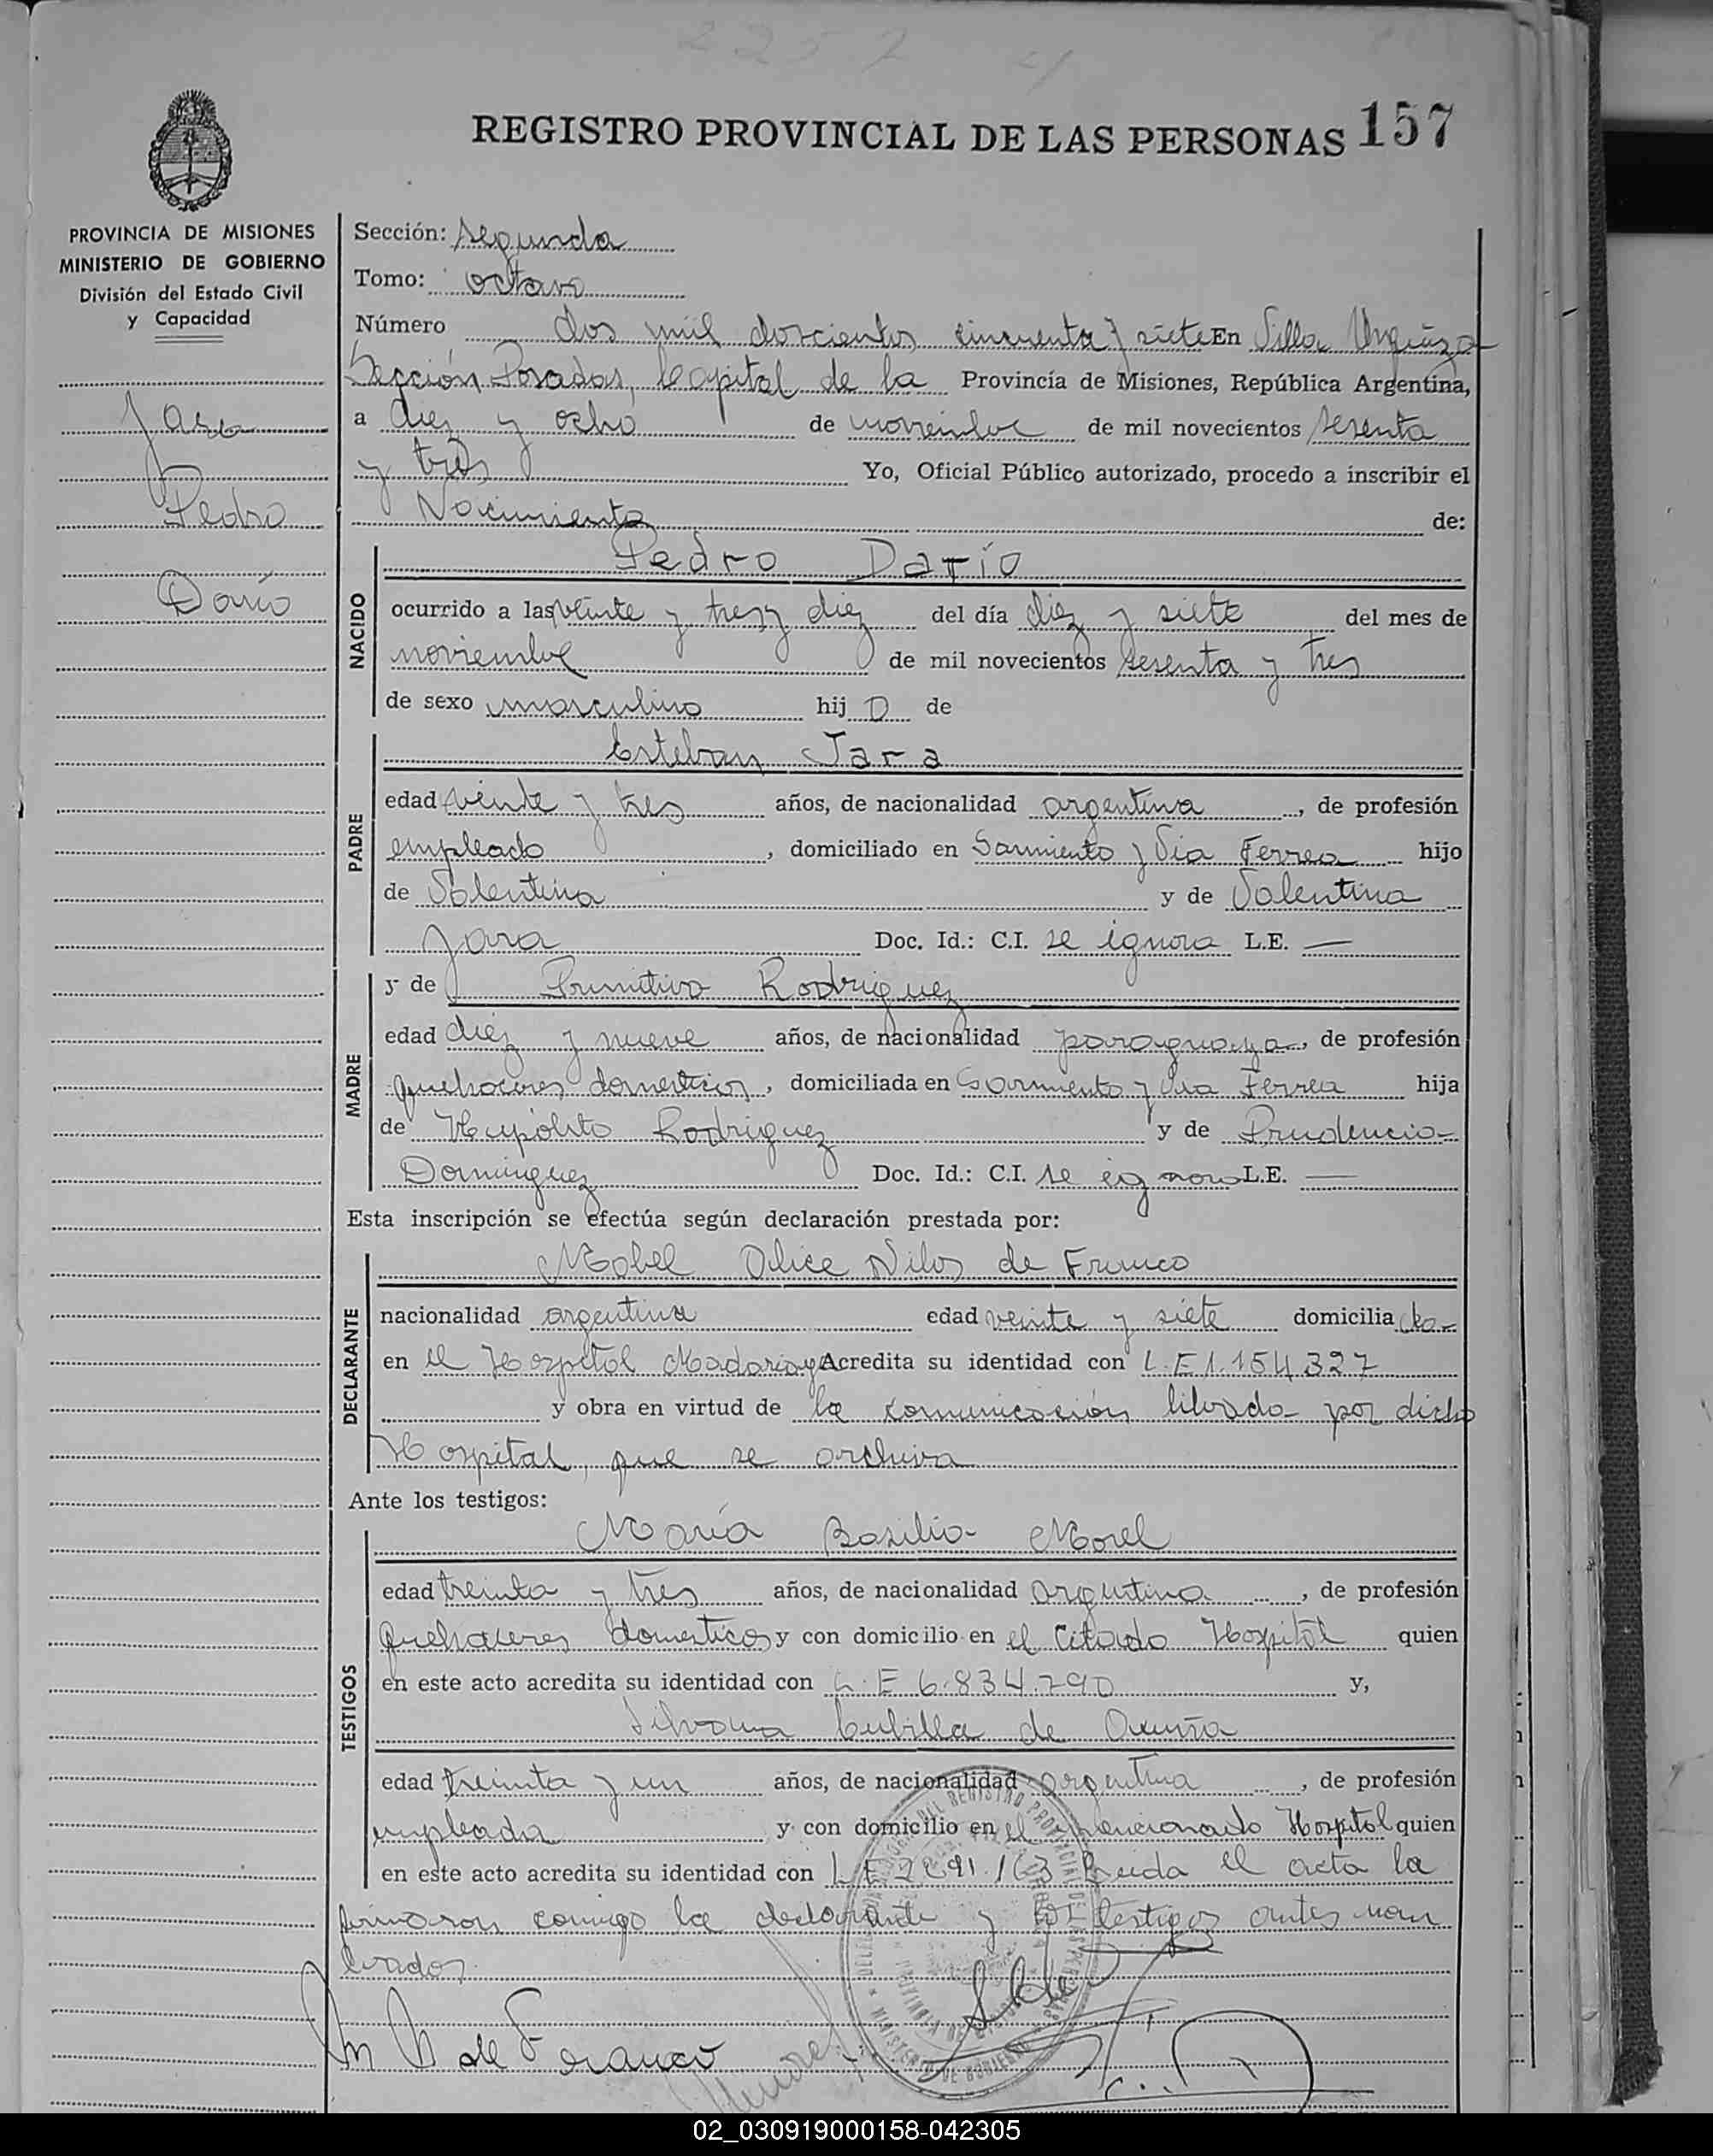 2257
REGISTRO PROVINCIAL DE LAS PERSONAS 157
PROVINCIA DE MISIONES
MINISTERIO DE GOBIERNO
División del Estado Civil
y Capacidad
Jara
Pedro
Darío
Sección: Segunda
Tomo: octavo
Número dos mil doscientos cincuenta y siete En Villa Urquiza
Sección Posadas, Capital de la Provincia de Misiones, República Argentina,
a diez y ocho de noviembre de mil novecientos sesenta
y tres Yo, Oficial Público autorizado, procedo a inscribir el
Nacimiento de:
NACIDO
Pedro Darío
ocurrido a las veinte y tres y diez del día diez y siete del mes de
noviembre de mil novecientos sesenta y tres
de sexo masculino hij o de
PADRE
Esteban Jara
edad veinte y tres años, de nacionalidad argentina, de profesión
empleado, domiciliado en Sarmiento y Via Ferrea hijo
de Valentina y de Valentina
Jara Doc. Id.: C.I. se ignora L.E. —
MADRE
y de Primitiva Rodriguez
edad diez y nueve años, de nacionalidad paraguaya, de profesión
quehaceres domesticos, domiciliada en Sarmiento y Via Ferrea hija
de Hipólito Rodriguez y de Prudencia
Dominguez Doc. Id.: C.I. se ignora L.E. —
Esta inscripción se efectúa según declaración prestada por:
DECLARANTE
Mabel Alice de Franco
nacionalidad argentina edad veinte y siete domicilia da
en el Hospital Madariaga Acredita su identidad con L.E 1.154.327
y obra en virtud de la comunicación librada por dicho
Hospital, que se archiva
Ante los testigos:
TESTIGOS
María Basilia Morel
edad treinta y tres años, de nacionalidad argentina, de profesión
quehaceres domesticos y con domicilio en el citado Hospital quien
en este acto acredita su identidad con L.E 6.834.790 y,
Silvana Cubilla de Acuña
edad treinta y un años, de nacionalidad argentina, de profesión
empleada y con domicilio en el mencionado Hospital quien
en este acto acredita su identidad con L.E Leida el acta la
firmaron conmigo la declarante y los testigos antes nom
brados
de Franco
02_030919000158-042305